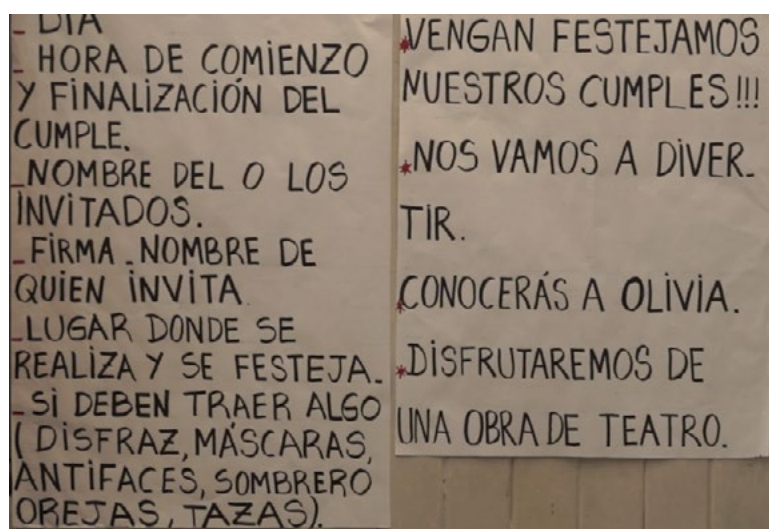 _ DÍA
_ HORA DE COMIENZO
Y FINALIZACIÓN DEL
CUMPLE.
_NOMBRE DEL O LOS
INVITADOS.
_FIRMA_NOMBRE DE
QUIEN INVITA
_LUGAR DONDE SE
REALIZA Y SE FESTEJA.
_SI DEBEN TRAER ALGO
( DISFRAZ, MÁSCARAS,
ANTIFACES, SOMBRERO
OREJAS, TAZAS).
*VENGAN FESTEJAMOS
NUESTROS CUMPLES!!!
*NOS VAMOS A DIVER_
TIR.
*CONOCERÁS A OLIVIA.
*DISFRUTAREMOS DE
UNA OBRA DE TEATRO.